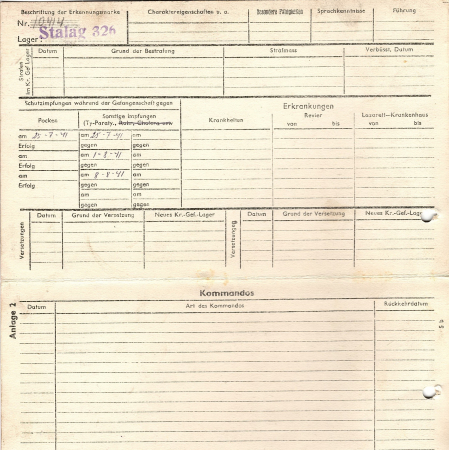 Beschriftung der Erkennungsmarke Charaktereigenschaften u. a. Besondere Fähigkeiten Sprachkenntnisse Führung
Nr. 
Lager: Stalag 326
Strafen im Kr.-Gef.-Lager Datum Grund der Bestrafung Strafmass Verbüsst, Datum
Schutzimpfungen während der Gefangenschaft gegen Erkrankungen
Pocken Sonstige Impfungen (Ty-Paraty., Ruhr, Cholera usw. Krankheiten Revier von bis Lazarett—Krankenhaus von bis
am 25-7-41 am 25-7-41 am
Erfolg gegen gegen
am am 1-8-41 am
Erfolg gegen gegen
am am 8-8-41 am
Erfolg gegen gegen
am am
gegen gegen
Versetzungen Datum Grund der Versetzung Neues Kr.-Gef.-Lager Versetzungen Datum Grund der Versetzung Neues Kr.-Gef.-Lager
Kommandos
Anlage 2 Datum Art des Kommandos Rückkehrdatum